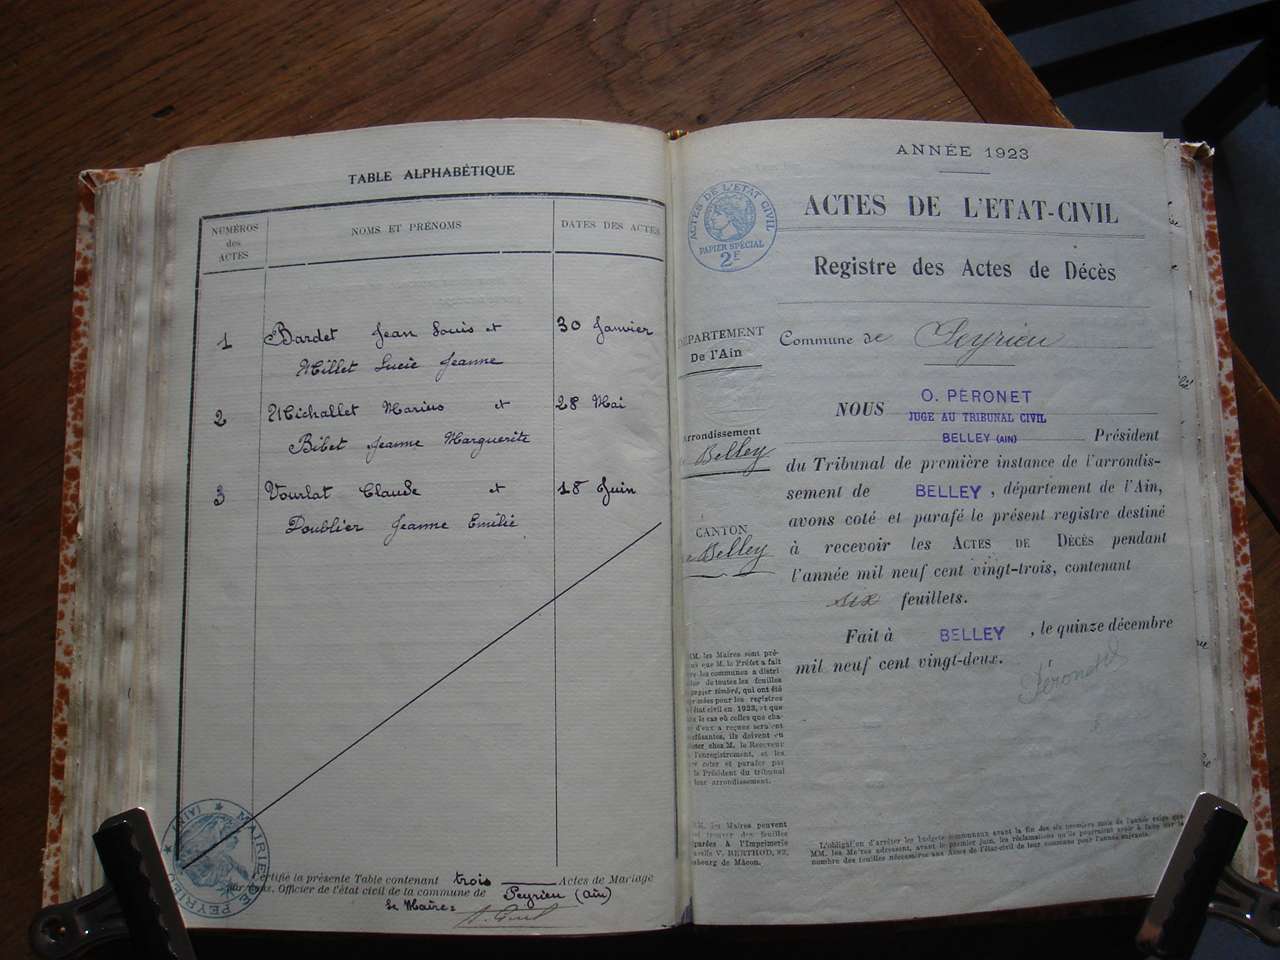 TABLE ALPHABÉTIQUE
NUMÉROS
des
ACTES
NOMS ET PRÉNOMS
DATES DES ACTES
1 Bardet Jean Louis et 30 Janvier
Millet Lucie Jeanne
2 Michallet Marius et 28 Mai
Bibet Jeanne Marguerite
3 Vourlat Claude et 18 Juin
Doublier Jeanne Emilie
MAIRIE DE PEYRIEU (AIN)
Certifié la présente Table contenant trois Actes de Mariage
par nous, Officier de l'état civil de la commune de Peyrieu (Ain)
le Maire:
ANNÉE 1923
ACTES DE L'ETAT CIVIL
PAPIER SPÉCIAL
2F
ACTES DE L'ETAT-CIVIL
Registre des Actes de Décès
DÉPARTEMENT
De l'Ain
Commune de Peyrieu
NOUS O. PÉRONET
JUGE AU TRIBUNAL CIVIL
BELLEY (AIN) Président
Arrondissement
Belley
du Tribunal de première instance de l'arrondis-
sement de BELLEY, département de l'Ain,
avons coté et parafé le présent registre destiné
CANTON
Belley
à recevoir les ACTES DE DÉCÈS pendant
l'année mil neuf cent vingt-trois, contenant
six feuillets.
Fait à BELLEY, le quinze décembre
mil neuf cent vingt-deux.
Péronet
MM. les Maires sont pré-
que M. le Préfet a fait
les communes a distri
de toutes les feuilles
papier timbré, qui ont été
pour les registres
état civil en 1923, et que
le cas où celles que cha-
d'eux a reçues seraient
ils doivent en
chez M. le Receveur
l'enregistrement, et les
coter et parafer par
le Président du tribunal
leur arrondissement.
MM. les Maires peuvent
trouver des feuilles
à l'Imprimerie
V. BERTHOD, 82,
de Mâcon.
L'obligation d'arrêter les budgets communaux avant la fin des six premiers mois de l'année exige que
MM. les Maires adressent, avant le premier juin, les réclamations qu'ils pourraient avoir à faire sur le
nombre des feuilles nécessaires aux Actes de l'état-civil de leur commune pour l'année suivante.